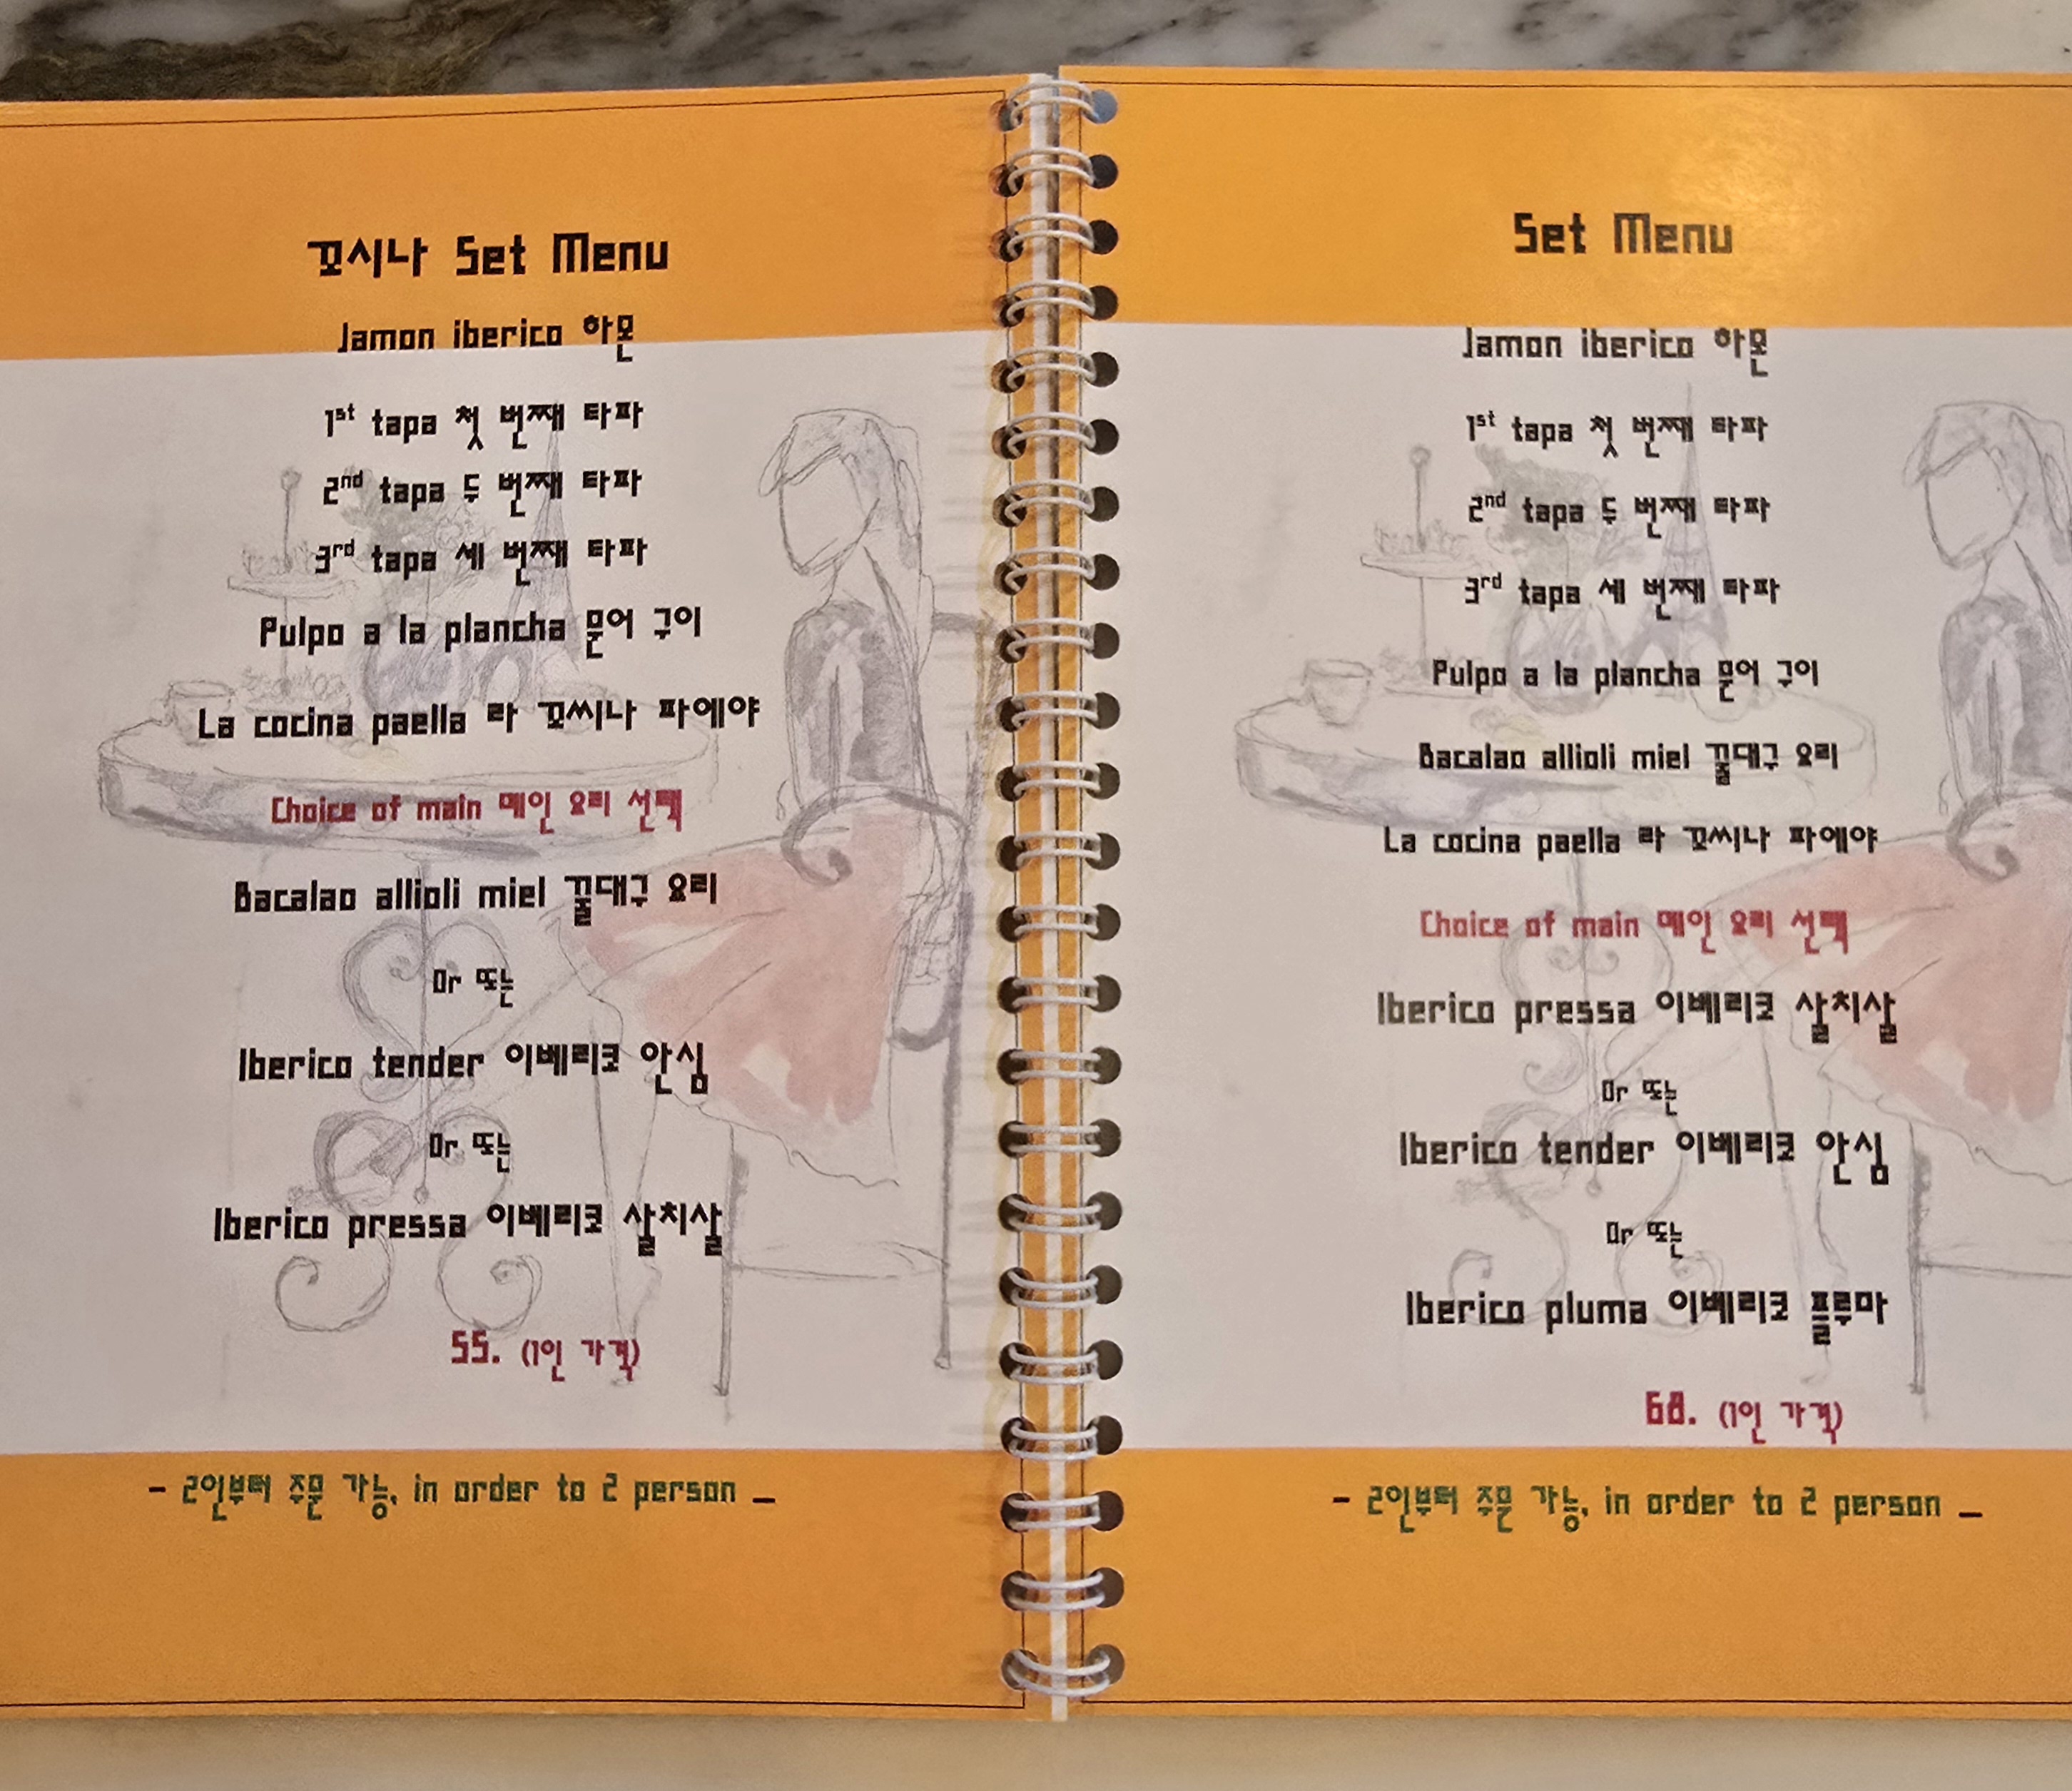 꼬시나 Set Menu
Jamon iberico 하몬
1st tapa 첫 번째 타파
2nd tapa 두 번째 타파
3rd tapa 세 번째 타파
Pulpo a la plancha 문어 구이
La cocina paella 라 꼬씨나 파에야
Choice of main 메인 요리 선택
Bacalao allioli miel 꿀대구 요리
Or 또는
Iberico tender 이베리코 안심
Or 또는
Iberico pressa 이베리코 살치살
55. (1인 가격)
- 2인부터 주문 가능, in order to 2 person -
Set Menu
Jamon iberico 하몬
1st tapa 첫 번째 타파
2nd tapa 두 번째 타파
3rd tapa 세 번째 타파
Pulpo a la plancha 문어 구이
Bacalao allioli miel 꿀대구 요리
La cocina paella 라 꼬씨나 파에야
Choice of main 메인 요리 선택
Iberico pressa 이베리코 살치살
Or 또는
Iberico tender 이베리코 안심
Or 또는
Iberico pluma 이베리코 플루마
68. (1인 가격)
- 2인부터 주문 가능, in order to 2 person -